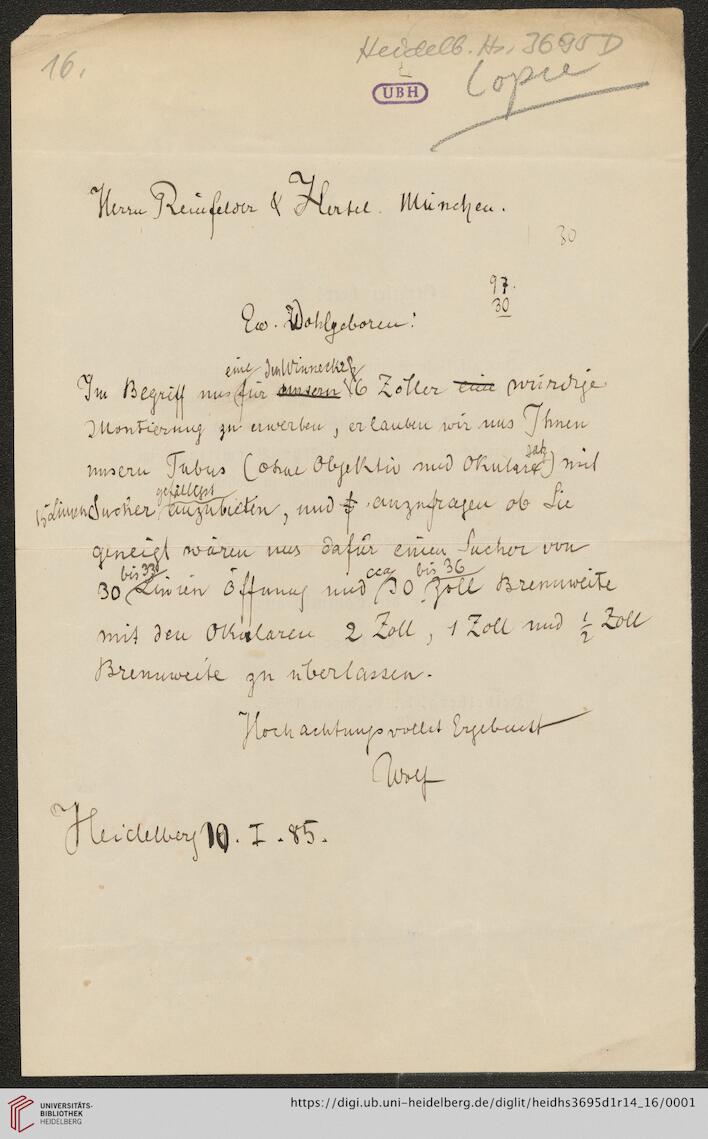 16.
Heidelb. Hs. 3695 D
Copie
UBH
Herrn Reinfelder & Hertel. München.
30
97.
30
Ew. Wohlgeboren:
eine den Winnecke
Im Begriff uns für unsern 6 Zöller eine würdige
Montierung zu erwerben, erlauben wir uns Ihnen
unsern Tubus (ohne Objektiv und Okularsatz) mit
15 Linien Sucher gefälligst anzubieten, und anzufragen ob Sie
geneigt wären uns dafür einen Sucher von
30 bis 33 Linien Öffnung und cca 30 bis 36 Zoll Brennweite
mit den Okularen 2 Zoll, 1 Zoll und ½ Zoll
Brennweite zu überlassen.
Hochachtungsvollst Ergebenst
Wolf
Heidelberg 10. I. 85.
UNIVERSITÄTS-
BIBLIOTHEK
HEIDELBERG
https://digi.ub.uni-heidelberg.de/diglit/heidhs3695d1r14_16/0001